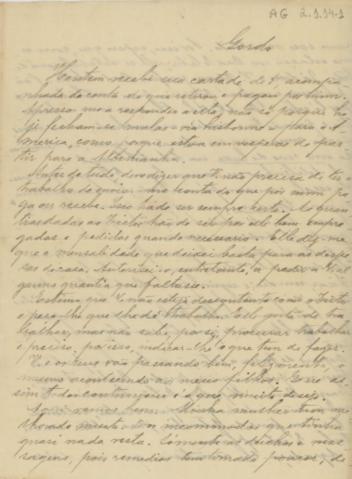 AG 2.1.14-1
Gordo
Hontem recebi sua carta de 27 acompa
nhada da conta do que retirou e pagou por mim.
Apresso-me a responder a ella, não só porque ho
je fecham-se malas para a A
merica, como porque estou em vesperas de par
tir para a Allemanha.
Antes de tudo devo dizer que V. não precisa de ter
trabalho de
ga ou recebe. Isso ha de ser sempre certo. As quan
tias dadas ao Fructo hão de ser por elle bem empre
gadas e pedidas quando necessario. Elle diz-me
que a mensalidade que deixei basta para as despe
sas de casa. Autorizei-o, entretanto, a pedir a V. al
guma quantia que faltasse.
Estimo que V. não esteja descontente com o
e peço-lhe que lhe dê trabalho. Elle gosta de tra
balhar, mas não sabe, por si, procurar trabalho
é preciso, por isso, indicar-lhe o que tem de fazer.
V. e os seus vão passando bem, felizmente, o
mesmo acontecendo a meus filhos. Deus as
sim todos continuem é o que muito desejo.
Aqui vamos bem. Minha mulher tem me
lhorado muito. Dos incommodos que tinha
quasi nada resta. Sómente as duchas e mas
sagens, pois remedios tem tomado poucos, de